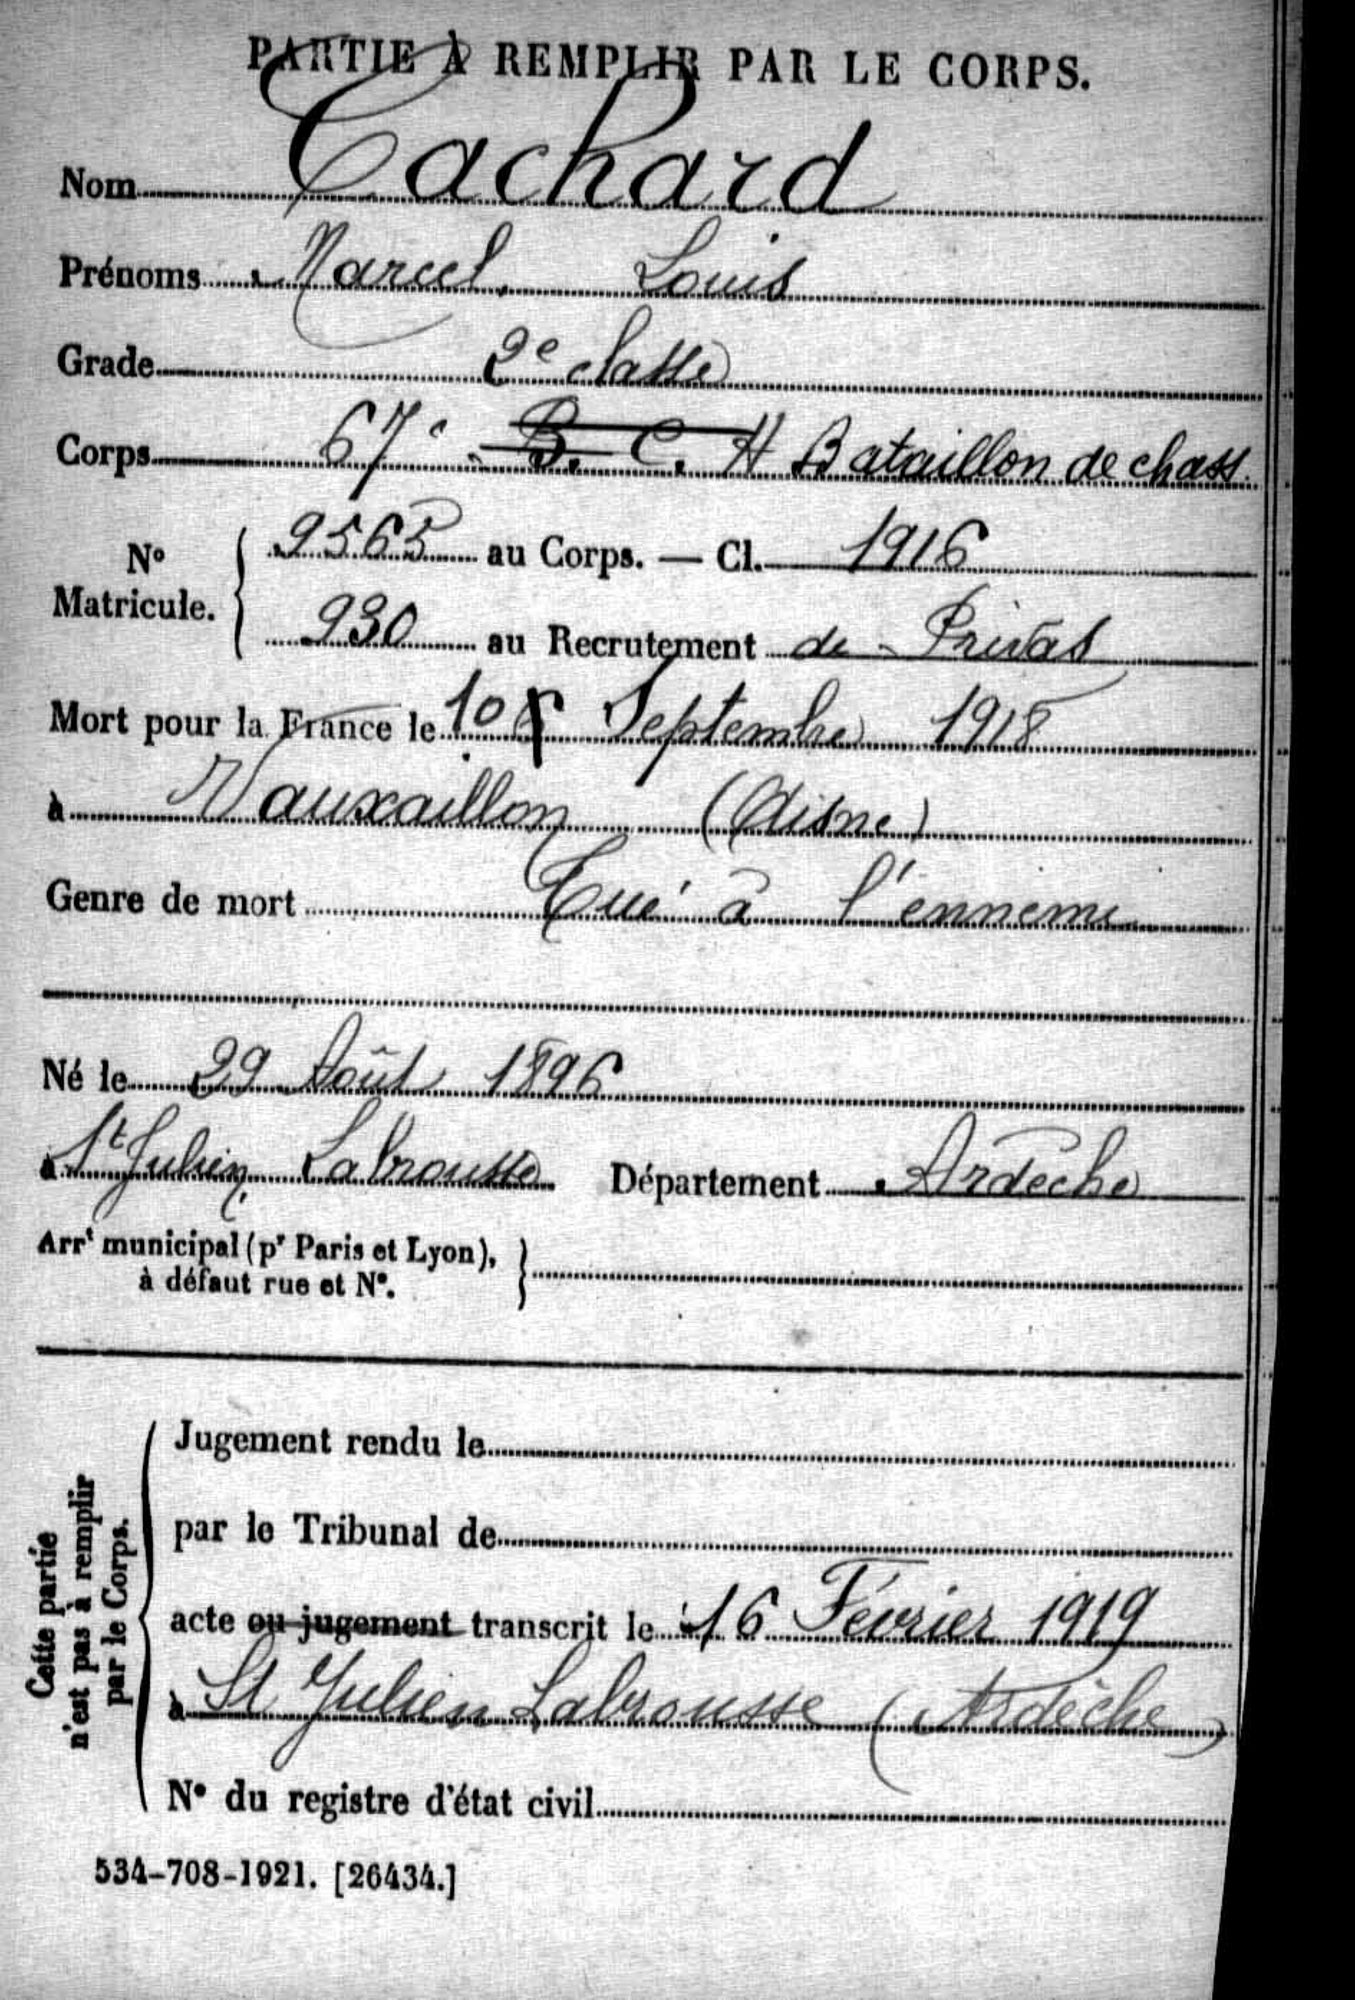 PARTIE À REMPLIR PAR LE CORPS.
Nom Cachard
Prénoms Marcel Louis
Grade 2e classe
Corps 67e B. C. H Bataillon de chass.
No Matricule. { 9565 au Corps. — Cl. 1916
930 au Recrutement de Privas
Mort pour la France le 10 Septembre 1918
à Vauxaillon (Aisne)
Genre de mort Tué à l'ennemi
Né le 29 Août 1896
à St Julien Labrousse Département Ardèche
Arrt municipal (pr Paris et Lyon), }
à défaut rue et No.
Cette partie n'est pas à remplir par le Corps.
Jugement rendu le
par le Tribunal de
acte ou jugement transcrit le 16 Février 1919
à St Julien Labrousse (Ardèche)
No du registre d'état civil
534-708-1921. [26434.]